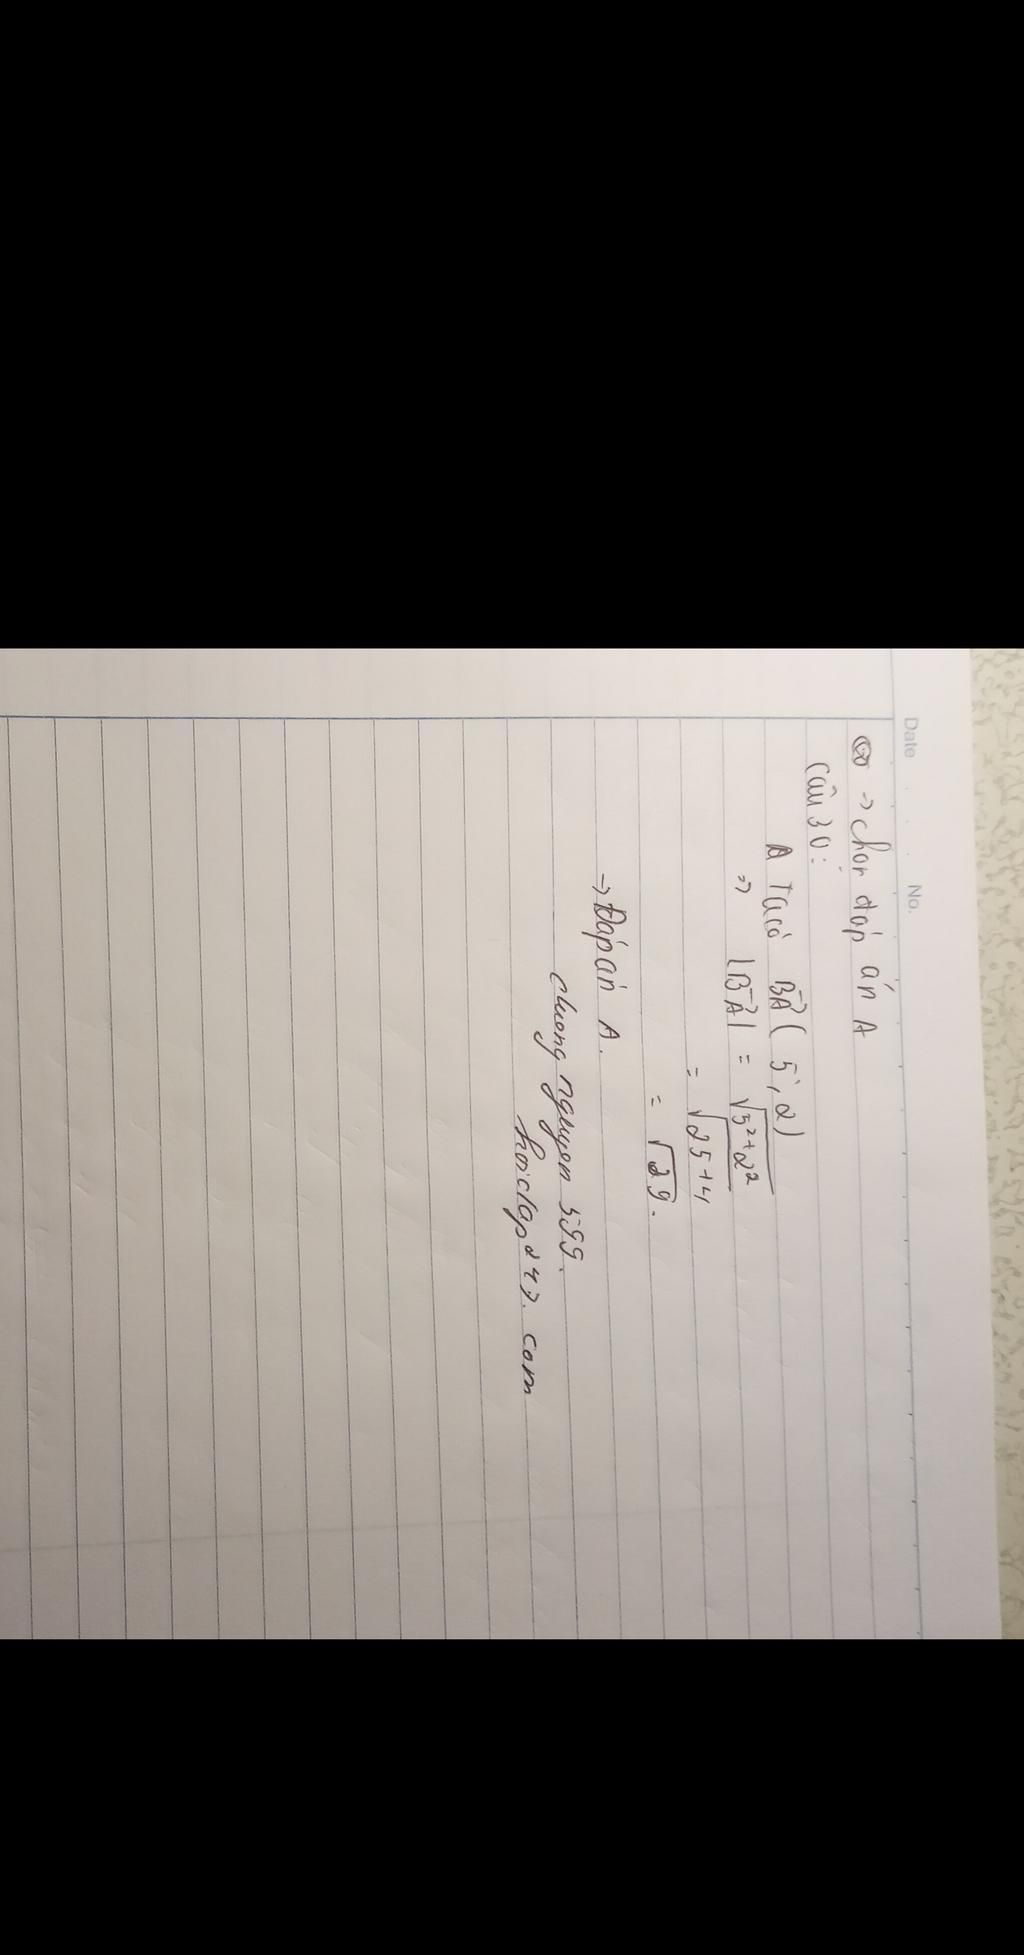 Date No.
→ chọn đáp án A
Câu 30:
Ta có BA→( 5; 2)
=> |BA→| = √5²+2²
= √25+4
= √29.
→ Đáp án A.
chuongnguyen599.
hoidap247.com